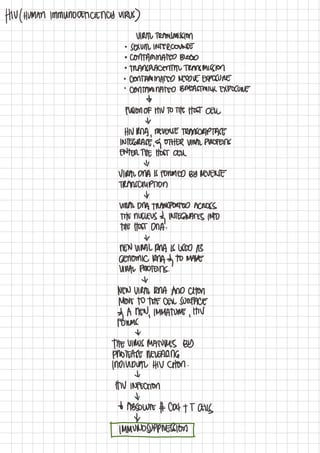 HIV (HUMAN IMMUNODEFICIENCY VIRUS)
VIRAL TRANSMISSION
• SEXUAL INTERCOURSE
• CONTAMINATED BLOOD
• TRANSPLACENTAL TRANSMISSION
• CONTAMINATED NEEDLE EXPOSURE
• CONTAMINATED BREASTMILK EXPOSURE
↓
FUSION OF HIV TO THE HOST CELL
↓
HIV RNA, REVERSE TRANSCRIPTASE
INTEGRASE, & OTHER VIRAL PROTEINS
ENTER THE HOST CELL
↓
VIRAL DNA IS FORMED BY REVERSE
TRANSCRIPTION
↓
VIRAL DNA TRANSPORTED ACROSS
THE NUCLEUS & INTEGRATES INTO
THE HOST DNA.
↓
NEW VIRAL RNA IS USED AS
GENOMIC RNA & TO MAKE
VIRAL PROTEINS.
↓
NEW VIRAL RNA AND
MOVE TO THE CELL SURFACE
& A NEW, IMMATURE, HIV
FORMS
↓
THE VIRUS MATURES BY
PROTEASE RELEASING
INDIVIDUAL HIV
↓
HIV INFECTION
↓
↓ ABSOLUTE # CD4 + T CELLS
↓
IMMUNOSUPPRESSION